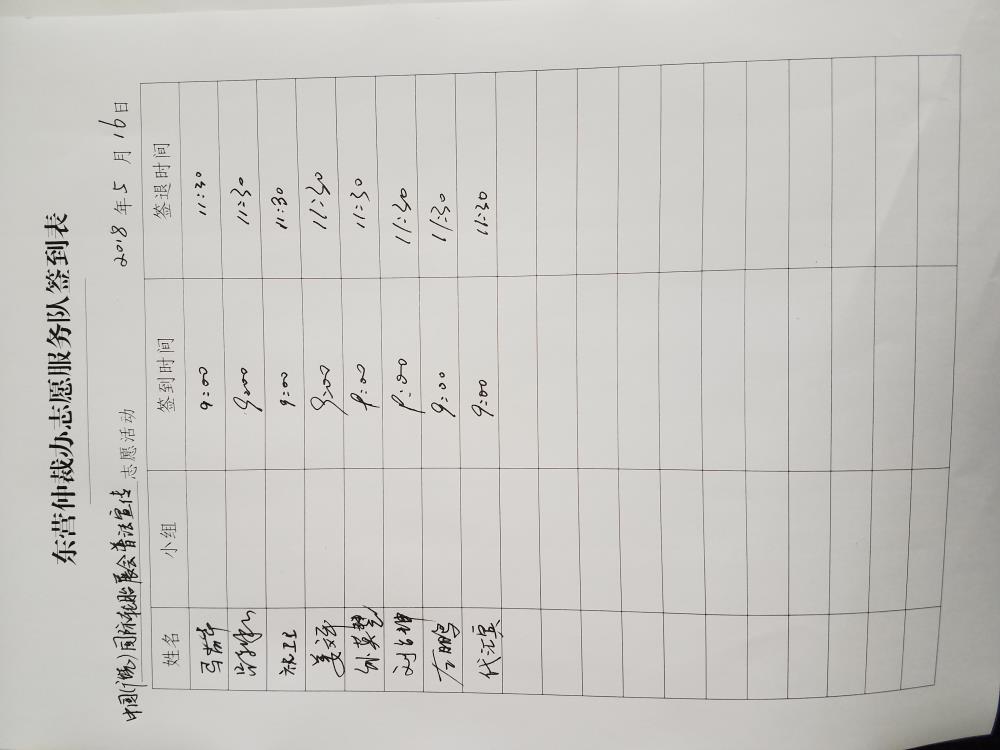 东营仲裁办志愿服务队签到表
中国(广饶)国际轮胎展会普法宣传 志愿活动 2018年5月16日
姓名 小组 签到时间 签退时间
9:00 11:30
9:00 11:30
祝卫卫 9:00 11:30
姜文 9:00 11:30
孙英慧 9:00 11:30
刘 9:00 11:30
左鹏 9:00 11:30
代汇宾 9:00 11:30